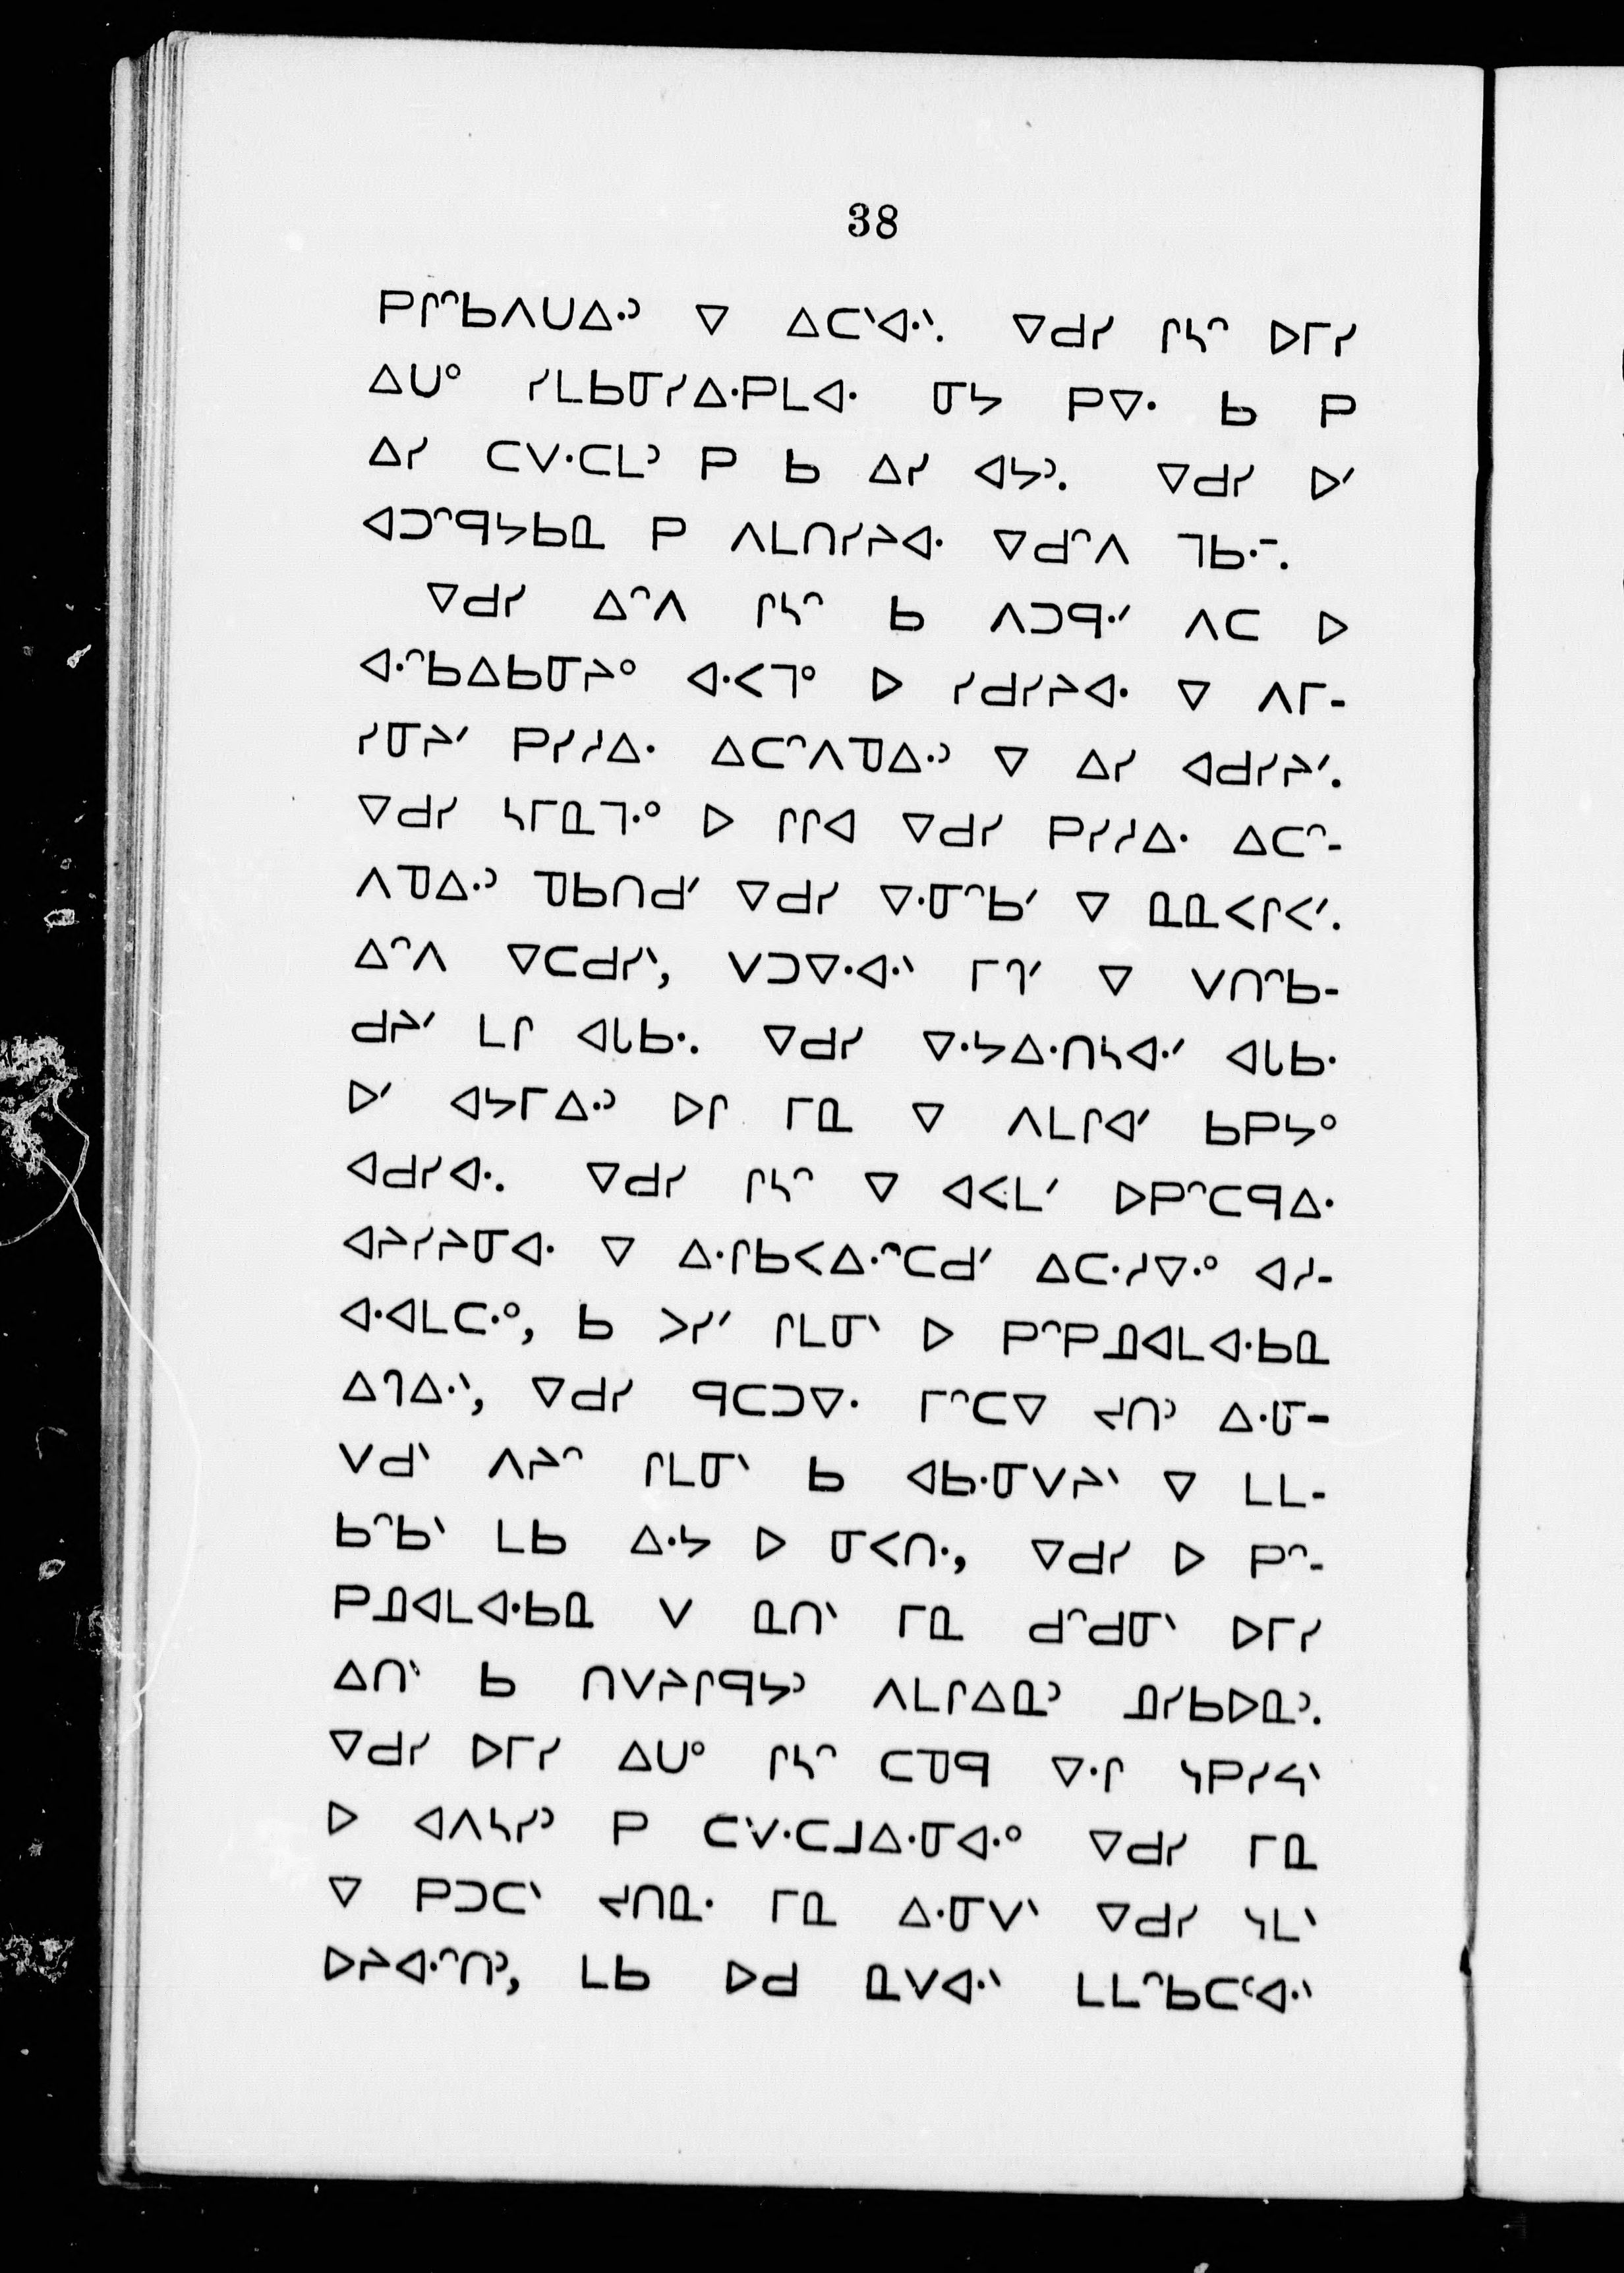 38
ᑭᒋᐢᑲᐱᑌᐃᐧᐣ ᐁ ᐃᑕᐠᐊᐧᐠ. ᐁᑯᓯ ᒋᓴᐢ ᐅᒥᓯ
ᐃᑌᐤ ᓯᒪᑲᓂᓯᐃᐧᑭᒪᐊᐧ ᓂᔭ ᑭᐁᐧ ᑲ ᑭ
ᐃᓯ ᑕᐯᐧᑕᒪᐣ ᑭ ᑲ ᐃᓯ ᐊᔭᐣ. ᐁᑯᓯ ᐅᐟ
ᐊᑐᐢᑫᔭᑲᓇ ᑭ ᐱᒪᑎᓯᔨᐊᐧ ᐁᑯᐢᐱ ᒣᑲᐧᐨ.
ᐁᑯᓯ ᐃᐢᐱ ᒋᓴᐢ ᑲ ᐱᑐᑫᐧᐟ ᐱᑕ ᐅ
ᐊᐧᐢᑲᐃᑲᓂᔨᐤ ᐊᐧᐸᒣᐤ ᐅ ᓯᑯᓯᔨᐊᐧ ᐁ ᐱᒥ-
ᓯᓂᔨᐟ ᑭᓯᓱᐃᐧ ᐃᑕᐢᐱᓀᐃᐧᐣ ᐁ ᐃᓯ ᐊᑯᓯᔨᐟ.
ᐁᑯᓯ ᓴᒥᓇᒣᐧᐤ ᐅ ᒋᒋᐊ ᐁᑯᓯ ᑭᓯᓱᐃᐧ ᐃᑕᐢ-
ᐱᓀᐃᐧᐣ ᓀᑲᑎᑯᐟ ᐁᑯᓯ ᐁᐧᓂᐢᑲᐟ ᐁ ᓇᓇᐸᒋᐸᐟ.
ᐃᐢᐱ ᐁᑕᑯᓯᐠ, ᐯᑐᐁᐧᐊᐧᐠ ᒥᒉᐟ ᐁ ᐯᑎᐢᑲ-
ᑯᔨᐟ ᒪᒋ ᐊᒐᑲᐧ. ᐁᑯᓯ ᐁᐧᔭᐃᐧᑎᓴᐊᐧᐟ ᐊᒐᑲᐧ
ᐅᐟ ᐊᔭᒥᐃᐧᐣ ᐅᒋ ᒥᓇ ᐁ ᐱᒪᒋᐊᐟ ᑲᑭᔭᐤ
ᐊᑯᓯᐊᐧ. ᐁᑯᓯ ᒋᓴᐢ ᐁ ᐊᐸᒪᐟ ᐅᑭᐢᑕᑫᐃᐧ
ᐊᔨᓯᔨᓂᐊᐧ ᐁ ᐃᐧᒋᑲᐸᐃᐧᐢᑕᑯᐟ ᐃᑕᐧᓱᐁᐧᐤ ᐊᓱ-
ᐊᐧᐊᒪᑕᐧᐤ, ᑲ ᐳᓯᐟ ᒋᒪᓂᐠ ᐅ ᑭᐢᑭᓄᐊᒪᐊᐧᑲᓇ
ᐃᒉᐃᐧᐠ, ᐁᑯᓯ ᑫᑕᑐᐁᐧ ᒥᐢᑕᐁ ᔪᑎᐣ ᐃᐧᓂ-
ᐯᑯᐠ ᐱᔨᐢ ᒋᒪᓂᐠ ᑲ ᐊᑲᐧᓂᐯᔨᐠ ᐁ ᒪᒪ-
ᑲᐢᑲᐠ ᒪᑲ ᐃᐧᔭ ᐅ ᓂᐸᑎᐧ, ᐁᑯᓯ ᐅ ᑭᐢ-
ᑭᓄᐊᒪᐊᐧᑲᓇ ᐯ ᓇᑎᐠ ᒥᓇ ᑯᐢᑯᓂᐠ ᐅᒥᓯ
ᐃᑎᐠ ᑲ ᑎᐯᔨᒋᑫᔭᐣ ᐱᒪᒋᐃᓇᐣ ᓄᓯᑲᐅᓇᐣ.
ᐁᑯᓯ ᐅᒥᓯ ᐃᑌᐤ ᒋᓴᐢ ᑕᓀᑫ ᐁᐧᒋ ᓭᑭᓯᔦᐠ
ᐅ ᐊᐱᓴᓯᐣ ᑭ ᑕᐯᐧᑕᒧᐃᐧᓂᐊᐧᐤ ᐁᑯᓯ ᒥᓇ
ᐁ ᑭᑐᑕᐠ ᔪᑎᓇᐧ ᒥᓇ ᐃᐧᓂᐯᐠ ᐁᑯᓯ ᓴᒪᐠ
ᐅᔨᐊᐧᐢᑎᐣ, ᒪᑲ ᐅᑯ ᓇᐯᐊᐧᐠ ᒪᒪᐢᑲᑕᑉᐊᐧᐠ